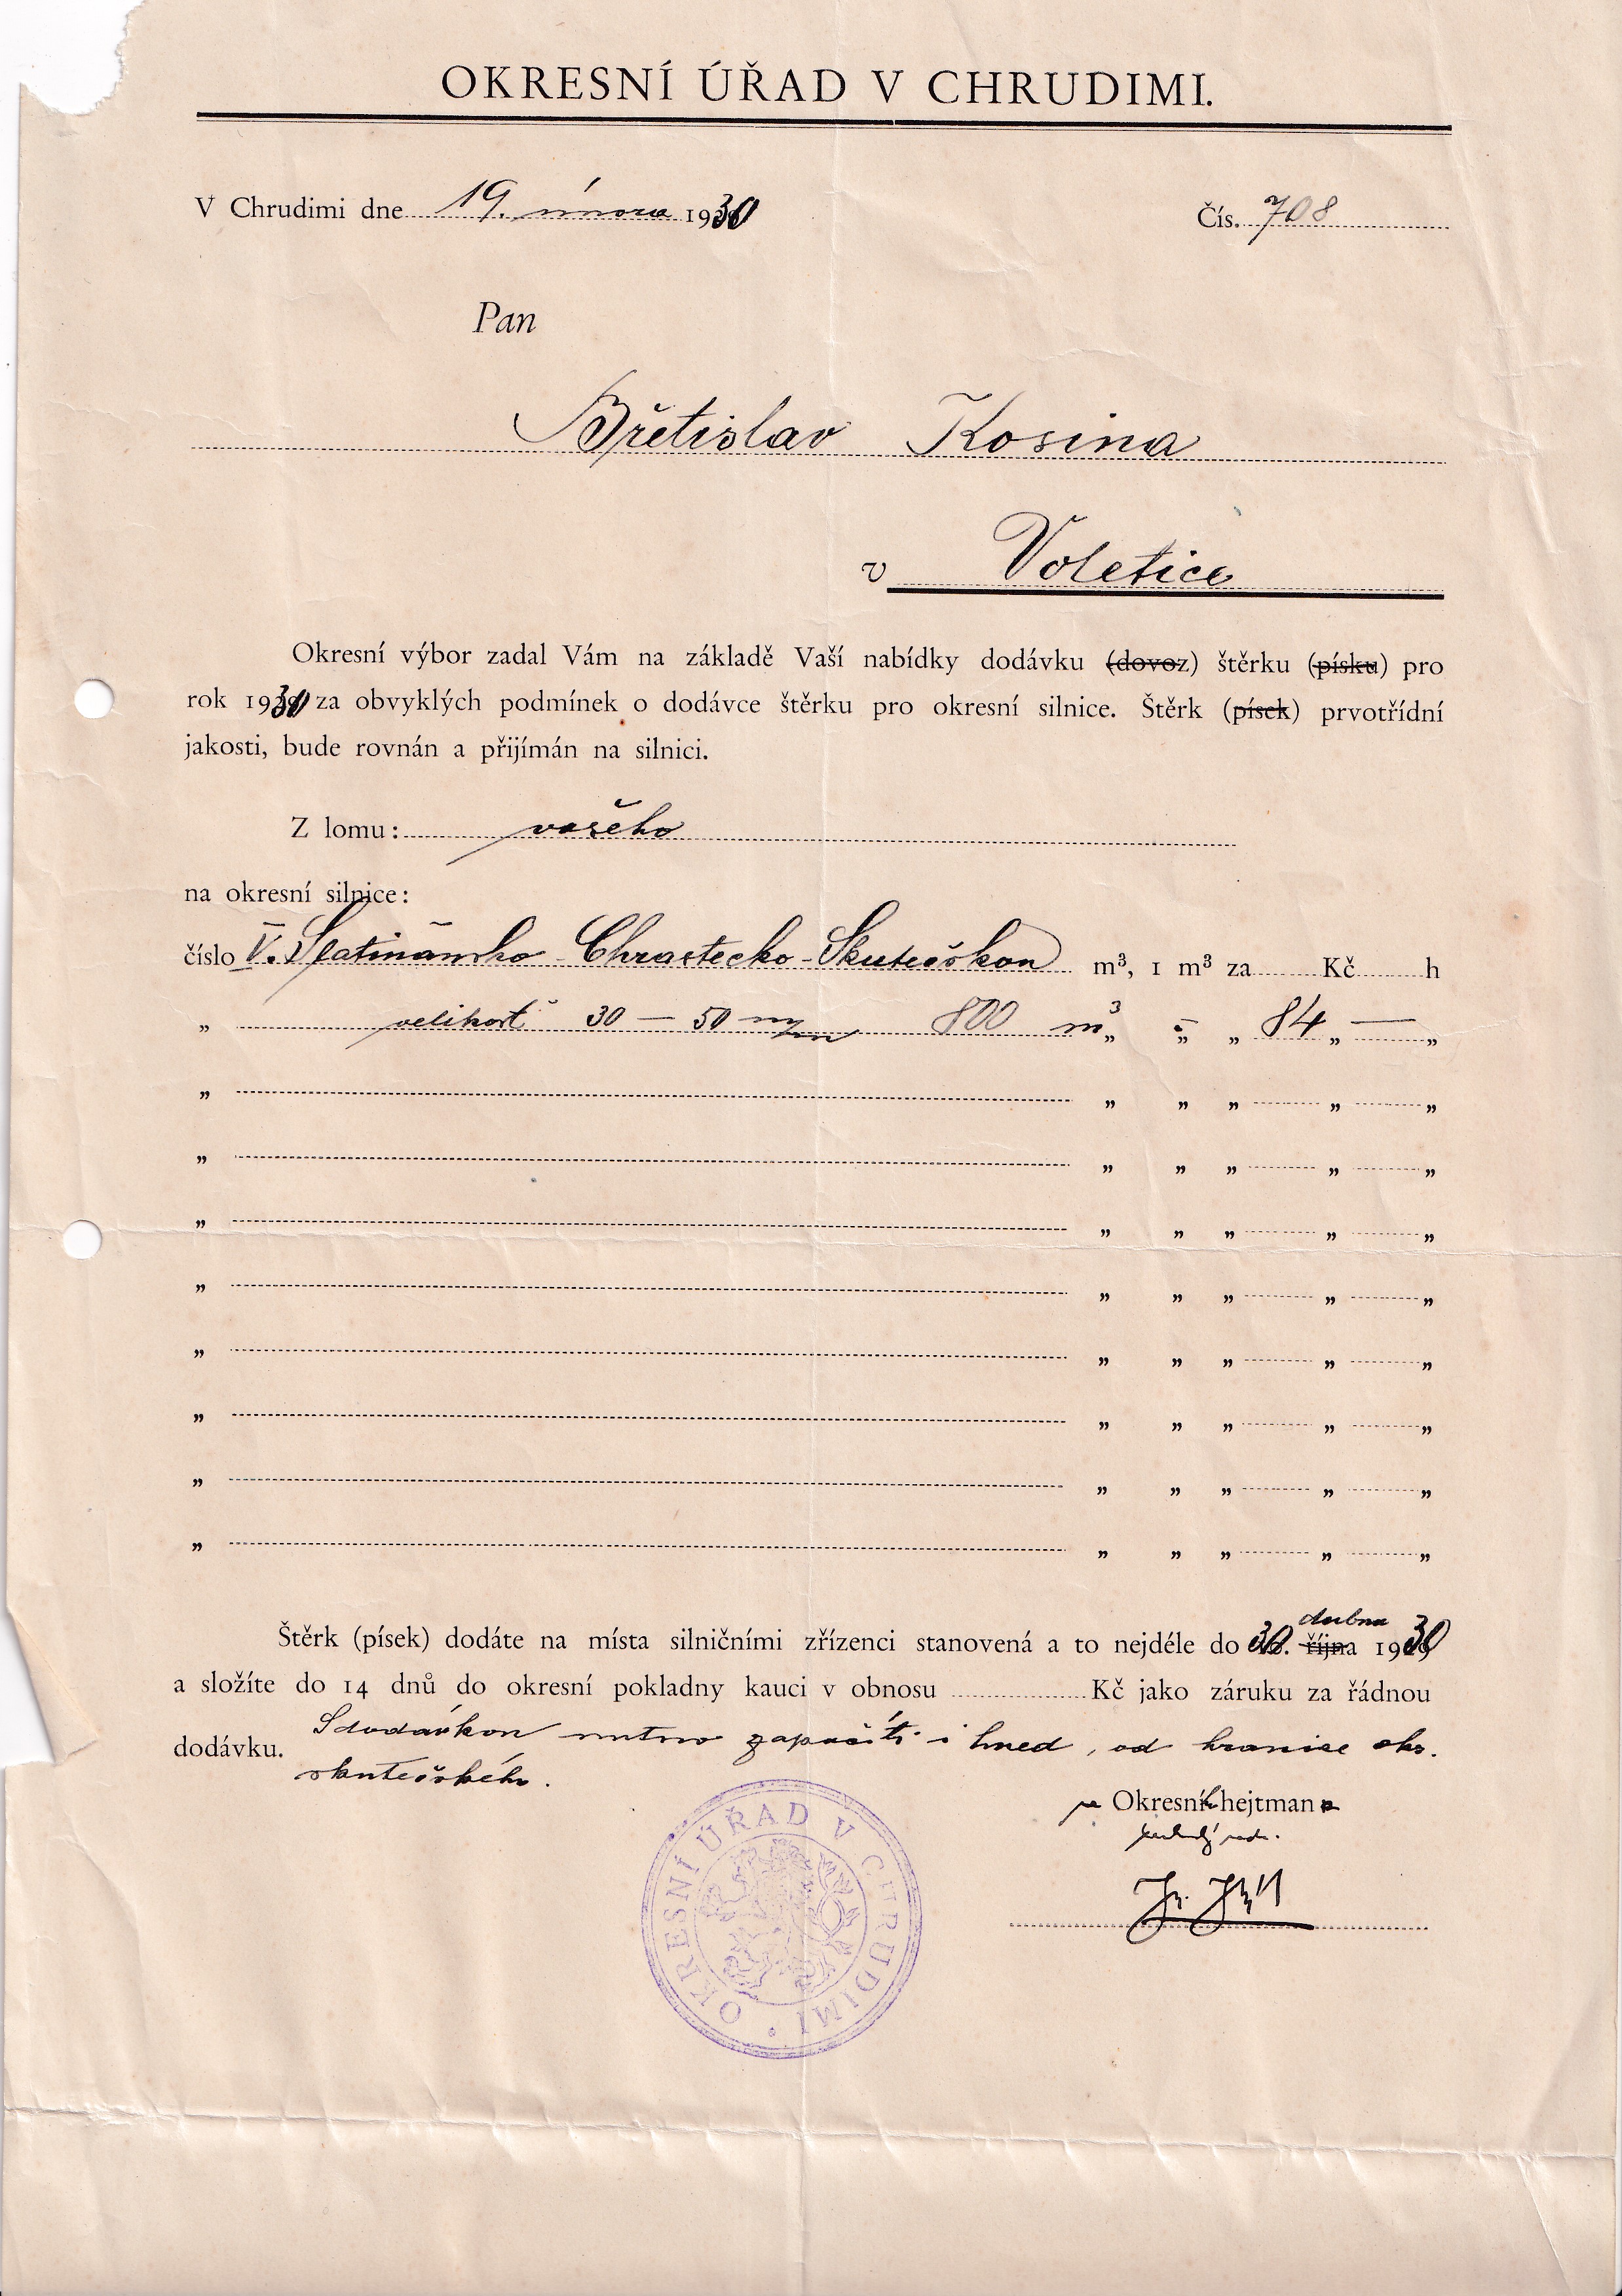 OKRESNÍ ÚŘAD V CHRUDIMI.
V Chrudimi dne 19. února 1930
Čís. 708
Pan
Břetislav Kosina
v Voletice
Okresní výbor zadal Vám na základě Vaší nabídky dodávku (dovoz) štěrku (písku) pro
rok 1930 za obvyklých podmínek o dodávce štěrku pro okresní silnice. Štěrk (písek) prvotřídní
jakosti, bude rovnán a přijímán na silnici.
Z lomu: vašeho
na okresní silnice:
číslo V. Slatiňansko-Chrastecko-Skutečskou m³, 1 m³ za Kč h
„ velikost 30 — 50 m/m 800 m³ „ „ „ 84 „ — „
„ „ „ „ „ „
„ „ „ „ „ „
„ „ „ „ „ „
„ „ „ „ „ „
„ „ „ „ „ „
„ „ „ „ „ „
„ „ „ „ „ „
„ „ „ „ „ „
dubna
Štěrk (písek) dodáte na místa silničními zřízenci stanovená a to nejdéle do 30. října 1930
a složíte do 14 dnů do okresní pokladny kauci v obnosu Kč jako záruku za řádnou
dodávku. S dodávkou nutno započíti i hned, od hranice okr.
skutečského.
Okresní hejtman
rada.
OKRESNÍ ÚŘAD V CHRUDIMI